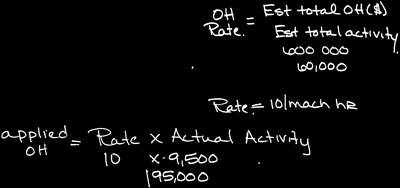 OH Rate. = Est total OH($)
Est total activity
600 000
60,000
Rate = 10/mach hr
applied OH = Rate x Actual Activity
10 x 9,500
|95,000